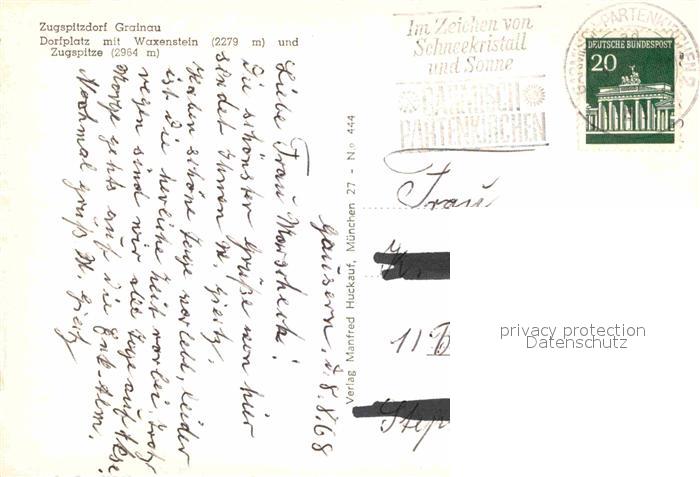 Zugspitzdorf Grainau
Dorfplatz mit Waxenstein (2279 m) und
Zugspitze (2964 m)
Im Zeichen von
Schneekristall
und Sonne
GARMISCH
PARTENKIRCHEN
GARMISCH-PARTENKIRCHEN
DEUTSCHE BUNDESPOST
20
8.8.68
Liebe Frau
Die schönsten Grüße von hier
sendet Ihnen
Haben schöne Tage verlebt, leider
ist die herrliche Zeit vorbei. Trotz
regen sind wir alle Tage auf
Morge gehts auf die
Nochmal gruß
Verlag Manfred Huckauf, München 27 - No 444
Frau
11
privacy protection
Datenschutz